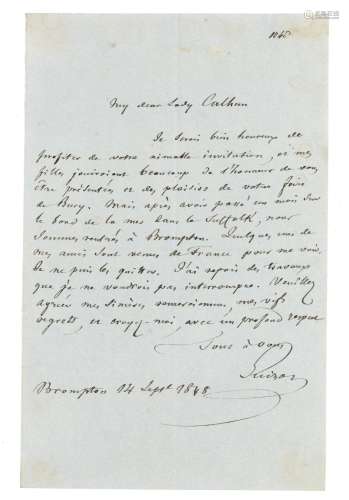 1848
My dear Lady Calhun
Je serais bien heureux de
profiter de votre aimable invitation, et mes
filles jouiroient beaucoup de l'honneur de vous
être présentées et des plaisirs de votre foire
de Bury. Mais après avoir passé un mois sur
le bord de la mer dans le Suffolk, nous
sommes rentrés à Brompton. Quelques uns de
mes amis sont venus de France pour me voir.
Je ne puis les quitter. J'ai repris des travaux
que je ne voudrois pas interrompre. Veuillez
agréer mes sincères remerciemens, mes vifs
regrets, et croyez-moi, avec un profond respect
Tout à vous
Guizot
Brompton 14 Sept. 1848